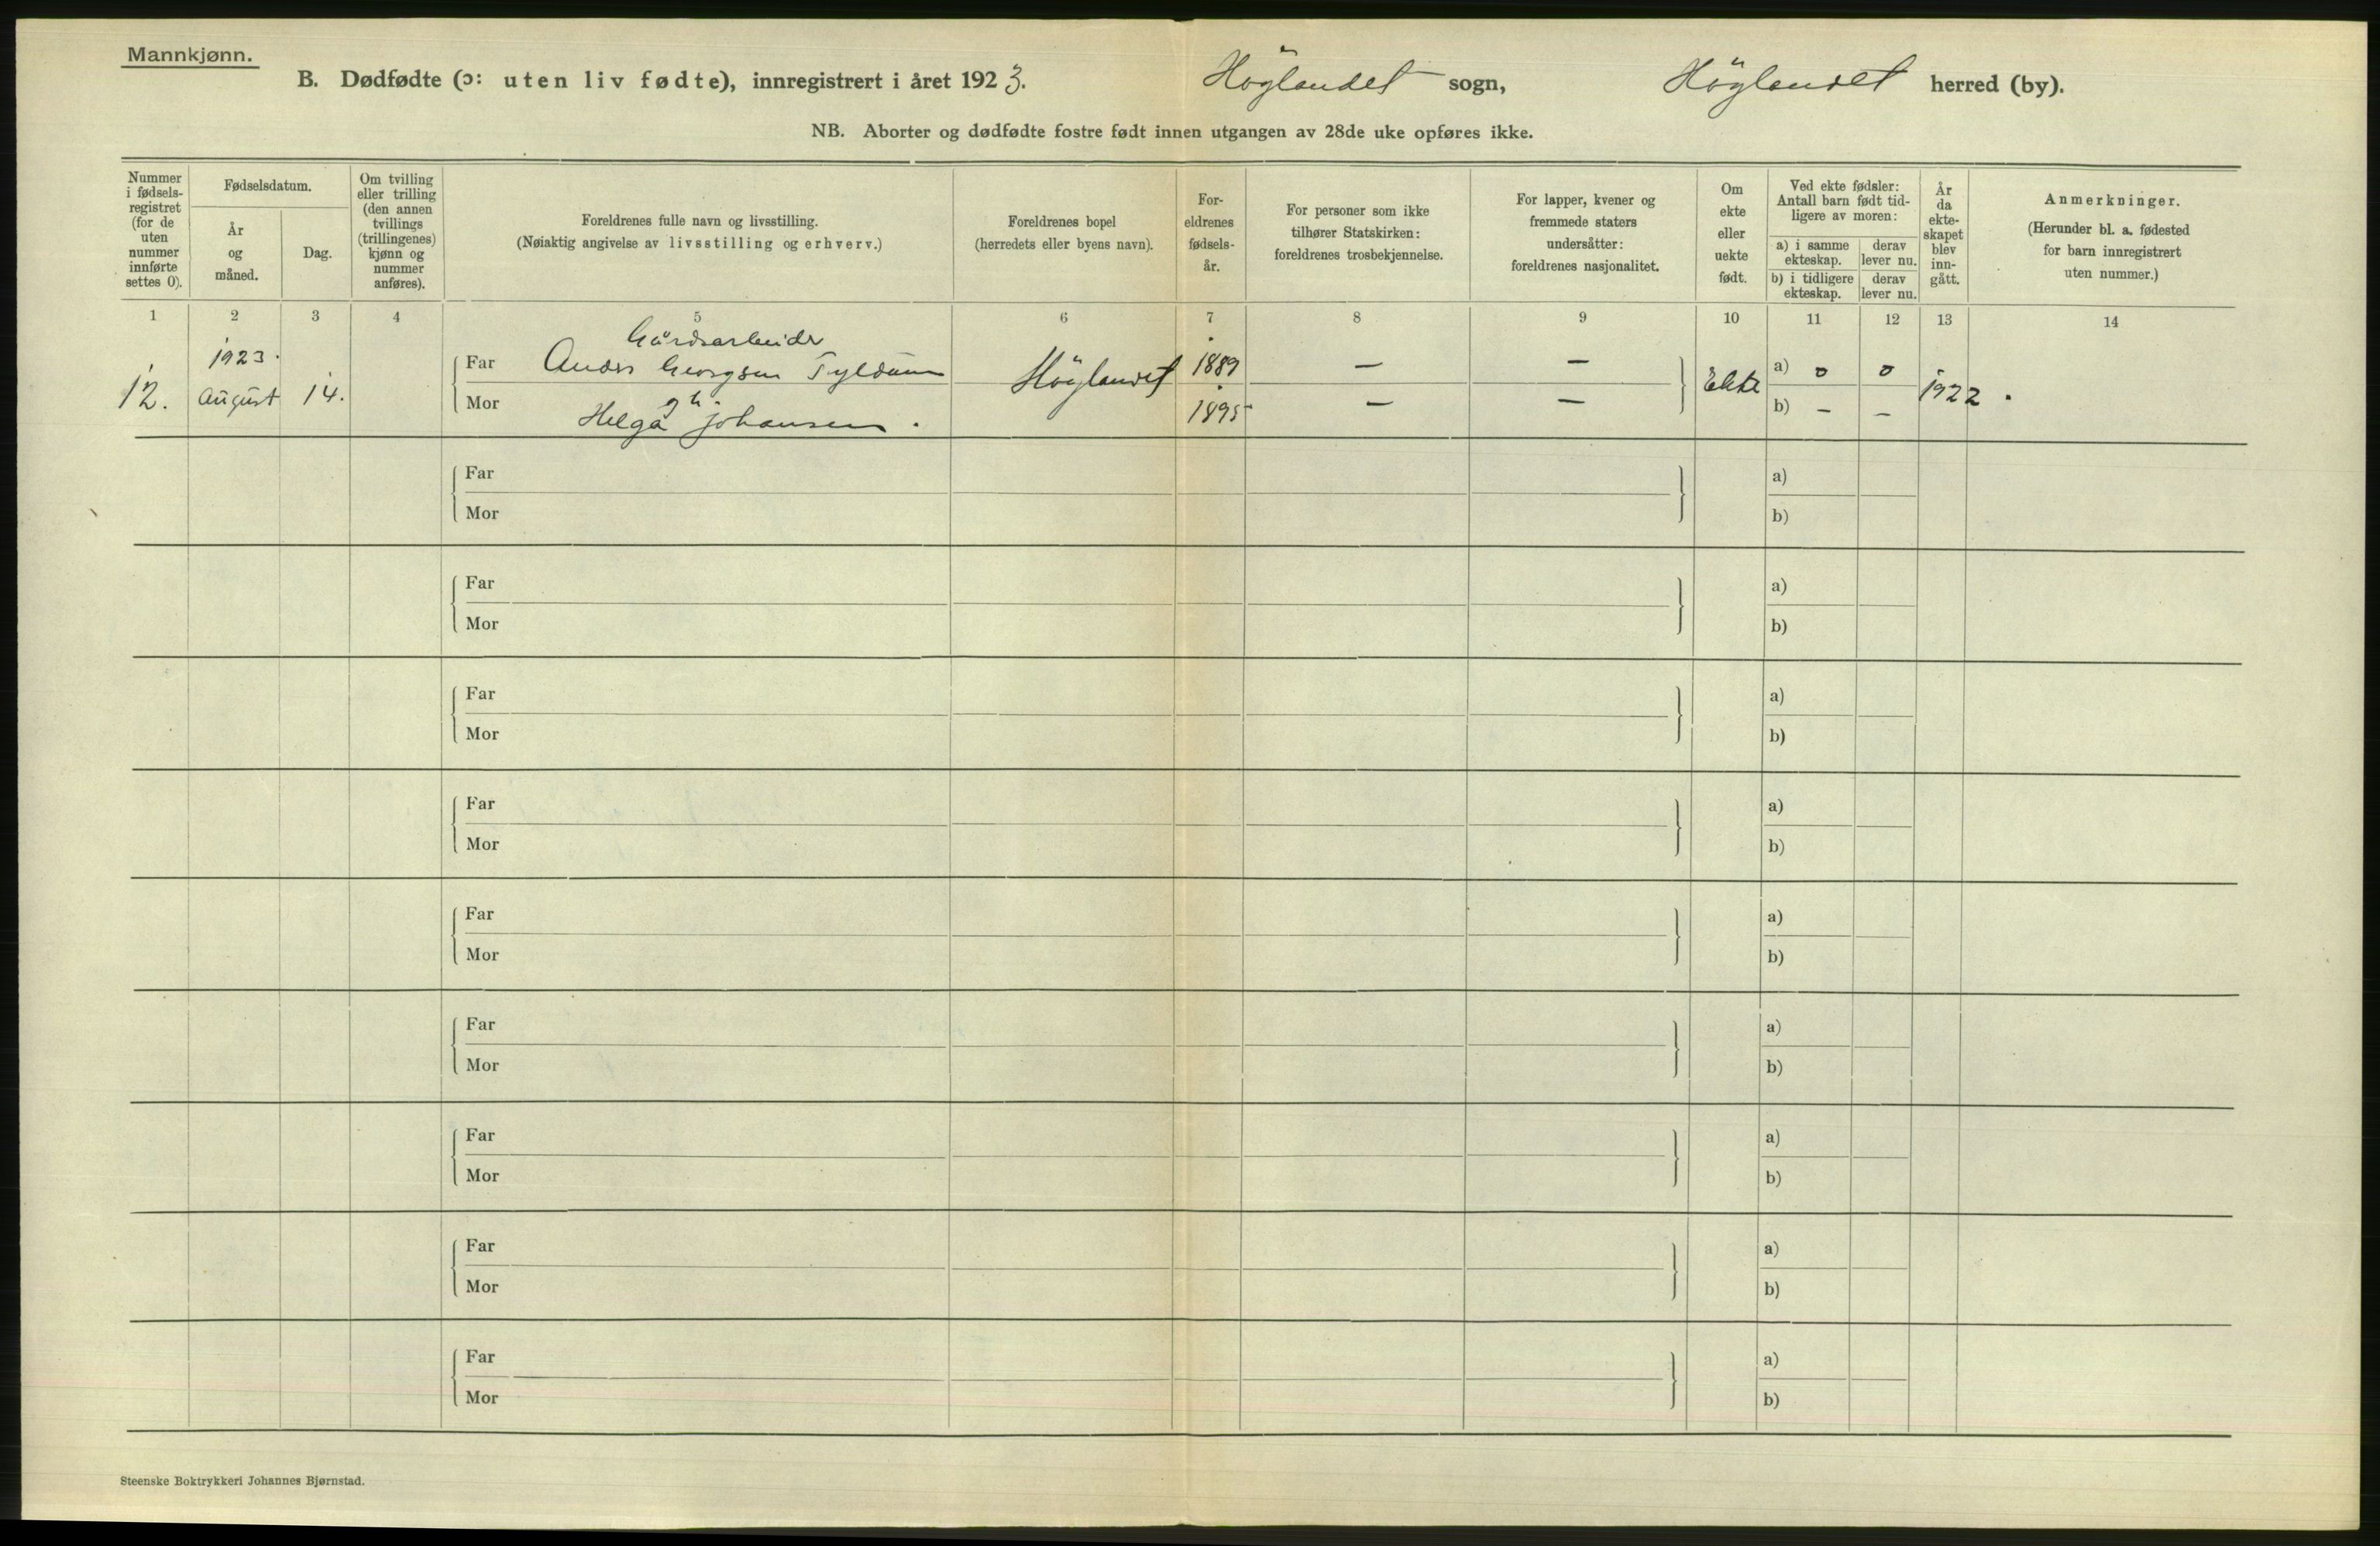 Mannkjønn.
B. Dødfødte (ɔ: uten liv fødte), innregistrert i året 1923. Höglandet sogn, Höglandet herred (by).
NB. Aborter og dødfødte fostre født innen utgangen av 28de uke opføres ikke.
Nummer i fødsels-registret (for de uten nummer innførte settes 0).
Fødselsdatum.
År og måned.
Dag.
Om tvilling eller trilling (den annen tvillings (trillingenes) kjønn og nummer anføres).
Foreldrenes fulle navn og livsstilling.
(Nøiaktig angivelse av livsstilling og erhverv.)
Foreldrenes bopel
(herredets eller byens navn).
For-eldrenes fødsels-år.
For personer som ikke tilhører Statskirken: foreldrenes trosbekjennelse.
For lapper, kvener og fremmede staters undersåtter: foreldrenes nasjonalitet.
Om ekte eller uekte født.
Ved ekte fødsler: Antall barn født tid-ligere av moren:
a) i samme ekteskap.
derav lever nu.
b) i tidligere ekteskap.
derav lever nu.
År da ekte-skapet blev inn-gått.
Anmerkninger.
(Herunder bl. a. fødested for barn innregistrert uten nummer.)
1 2 3 4 5 6 7 8 9 10 11 12 13 14
Gårdsarbeider
1923.
12. August 14.
Far Anders Georgsen Tyldum Höylandet 1889 — — Ekte a) 0 0 1922.
Mor Helga Johansen. 1895 — — b) — —
Far a)
Mor b)
Far a)
Mor b)
Far a)
Mor b)
Far a)
Mor b)
Far a)
Mor b)
Far a)
Mor b)
Far a)
Mor b)
Far a)
Mor b)
Far a)
Mor b)
Steenske Boktrykkeri Johannes Bjørnstad.